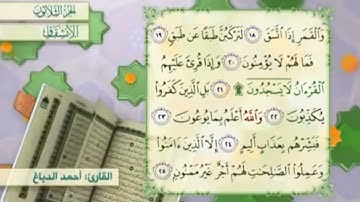 الجزء الثلاثون
الانشقاق
وَالْقَمَرِ إِذَا اتَّسَقَ ١٨ لَتَرْكَبُنَّ طَبَقًا عَن طَبَقٍ ١٩
فَمَا لَهُمْ لَا يُؤْمِنُونَ ٢٠ وَإِذَا قُرِئَ عَلَيْهِمُ
الْقُرْءَانُ لَا يَسْجُدُونَ ۩ ٢١ بَلِ الَّذِينَ كَفَرُوا
يُكَذِّبُونَ ٢٢ وَاللَّهُ أَعْلَمُ بِمَا يُوعُونَ ٢٣
فَبَشِّرْهُم بِعَذَابٍ أَلِيمٍ ٢٤ إِلَّا الَّذِينَ ءَامَنُوا
وَعَمِلُوا الصَّالِحَاتِ لَهُمْ أَجْرٌ غَيْرُ مَمْنُونٍ ٢٥
القارئ: أحمد الدباغ